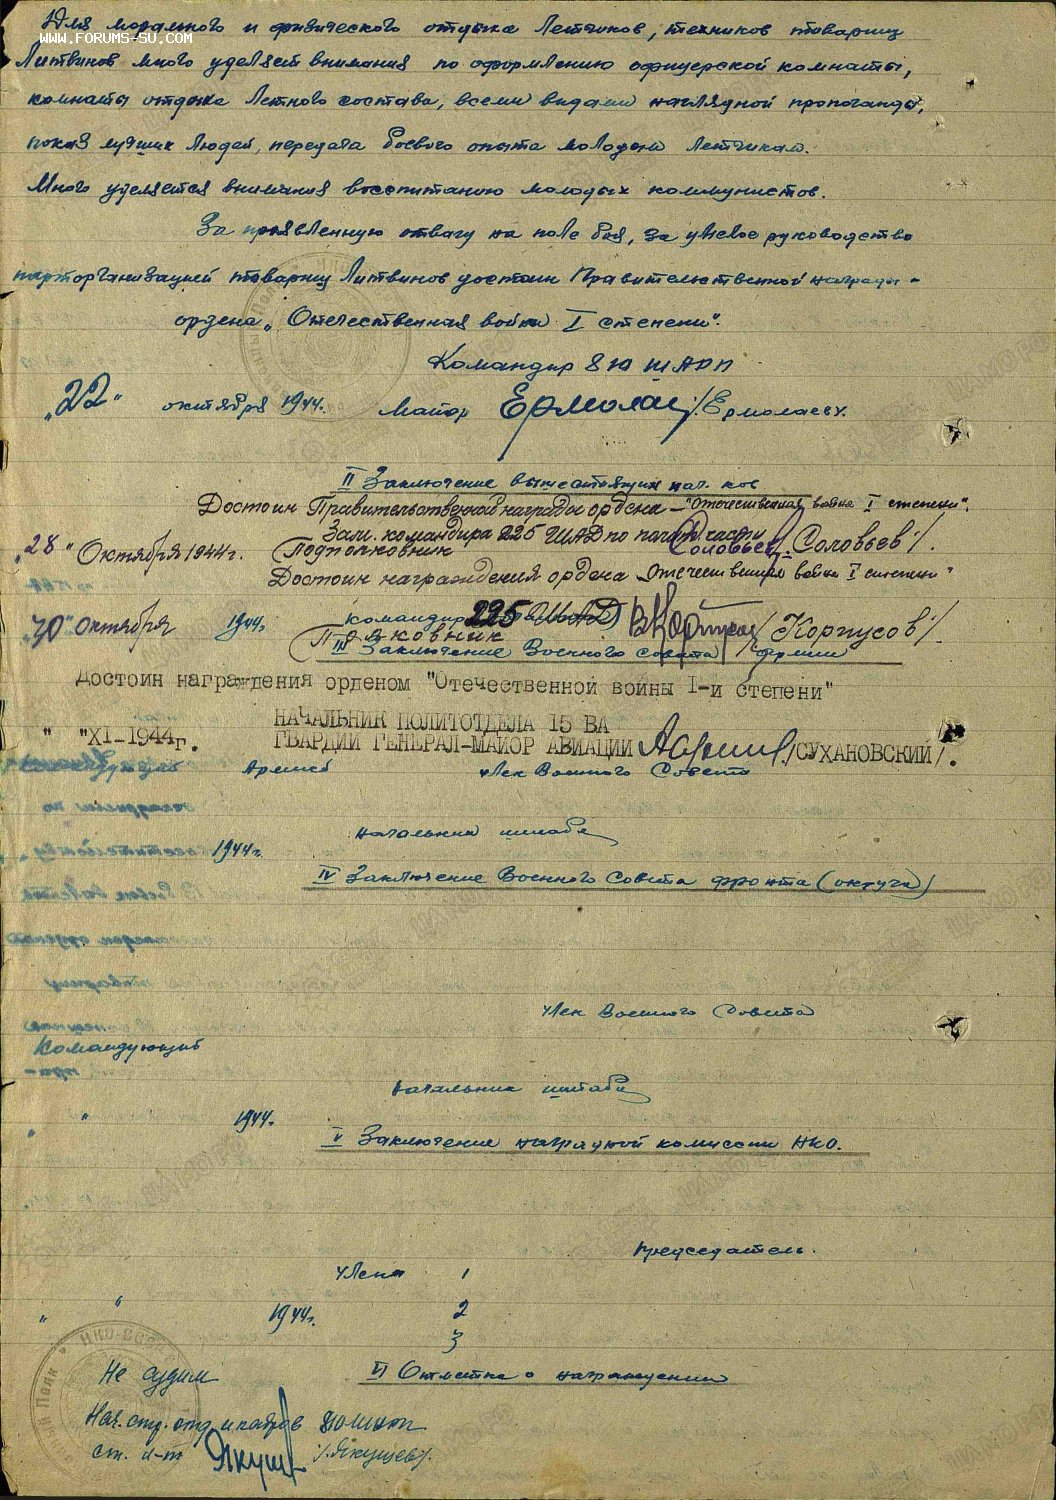 Для морального и физического отдыха Летчиков, техников товарищ
WWW.FORUMS-SU.COM
Литвинов много уделяет внимания по оформлению офицерской комнаты,
комнаты отдыха Летного состава, всеми видами наглядной пропоганды,
показ лучших людей, передача боевого опыта молодым Летчикам.
Много уделяется внимания воспитанию молодых коммунистов.
За проявленную отвагу на поле боя, за умелое руководство
парторганизацией товарищ Литвинов достоин Правительственной награды -
ордена „Отечественная война I степени".
Командир 810 ШАП
„22" октября 1944г. Майор /Ермолаев/.
II Заключение вышестоящих нач.ков
Достоин Правительственной награды ордена - "Отечественная война I степени".
Зам. командира 225 ШАД по полит части
„28" Октября 1944г. Подполковник Соловьев /Соловьев/.
Достоин награждения ордена „Отечественная война I степени"
30 Октября 1944г. Командир 225 ШАД
Полковник /Корпусов/.
III Заключение Военного совета Армии
Достоин награждения орденом "Отечественной войны I-й степени"
НАЧАЛЬНИК ПОЛИТОТДЕЛА 15 ВА
" "XI-1944г. ГВАРДИИ ГЕНЕРАЛ-МАЙОР АВИАЦИИ /СУХАНОВСКИЙ/.
Армией Член Военного Совета
Начальник штаба
1944г.
IV Заключение Военного Совета фронта (округа)
Член Военного Совета
Командующий
Начальник штаба
" " 1944г.
V Заключение наградной комиссии НКО.
Председатель.
Члены 1
" " 1944г. 2
3
Не судим VI Отметка о награждении
Нач. стр. отд. и кадров
ст. л-т Якуш /Якушев/.